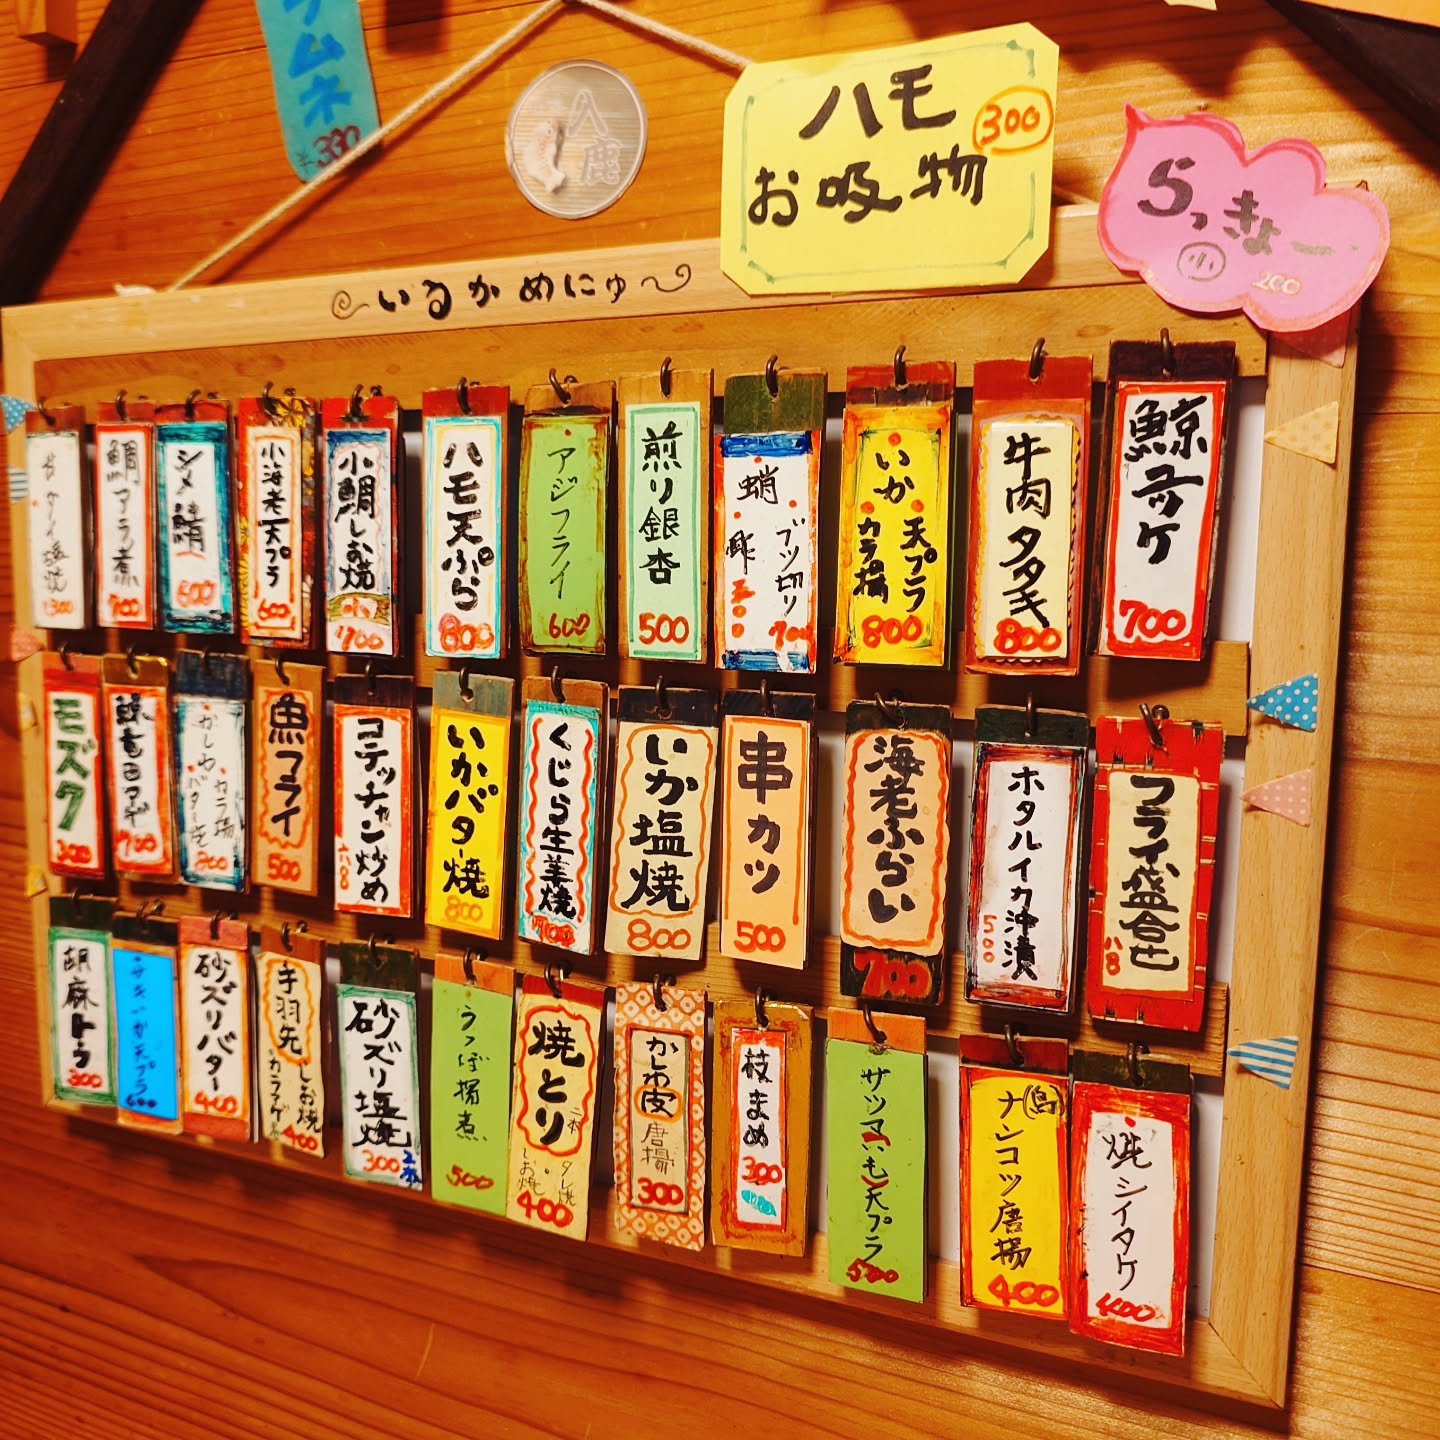 ラムネ
330
入鹿
ハモ
お吸物
300
らっきょー
小
200
いるかめにゅ〜
鯛アラ煮
700
シメ鯖
600
小海老天プラ
600
小鯛しお焼
700
ハモ天ぷら
800
アジフライ
600
煎り銀杏
500
蛸
ブツ切り
700
酢
500
いか
天プラ
カラ揚
800
牛肉タタキ
800
鯨ユッケ
700
モズク
300
鯨竜田アゲ
700
かしわ
カラ揚
バター
700
魚フライ
500
コテッチャン炒め
いかバター焼
800
くじら生姜焼
700
いか塩焼
800
串カツ
500
海老ふらい
700
ホタルイカ沖漬
500
フライ盛合せ
胡麻トーフ
300
天プラ
600
砂ズリバター
400
手羽先
しお焼
カラアゲ
400
砂ズリ塩焼
300
2本
うつぼ揚煮
500
焼とり
二本
タレ焼
しお焼
400
かしわ皮
唐揚
300
枝まめ
300
サツマいも天プラ
500
(鳥)
ナンコツ唐揚
400
焼シイタケ
400